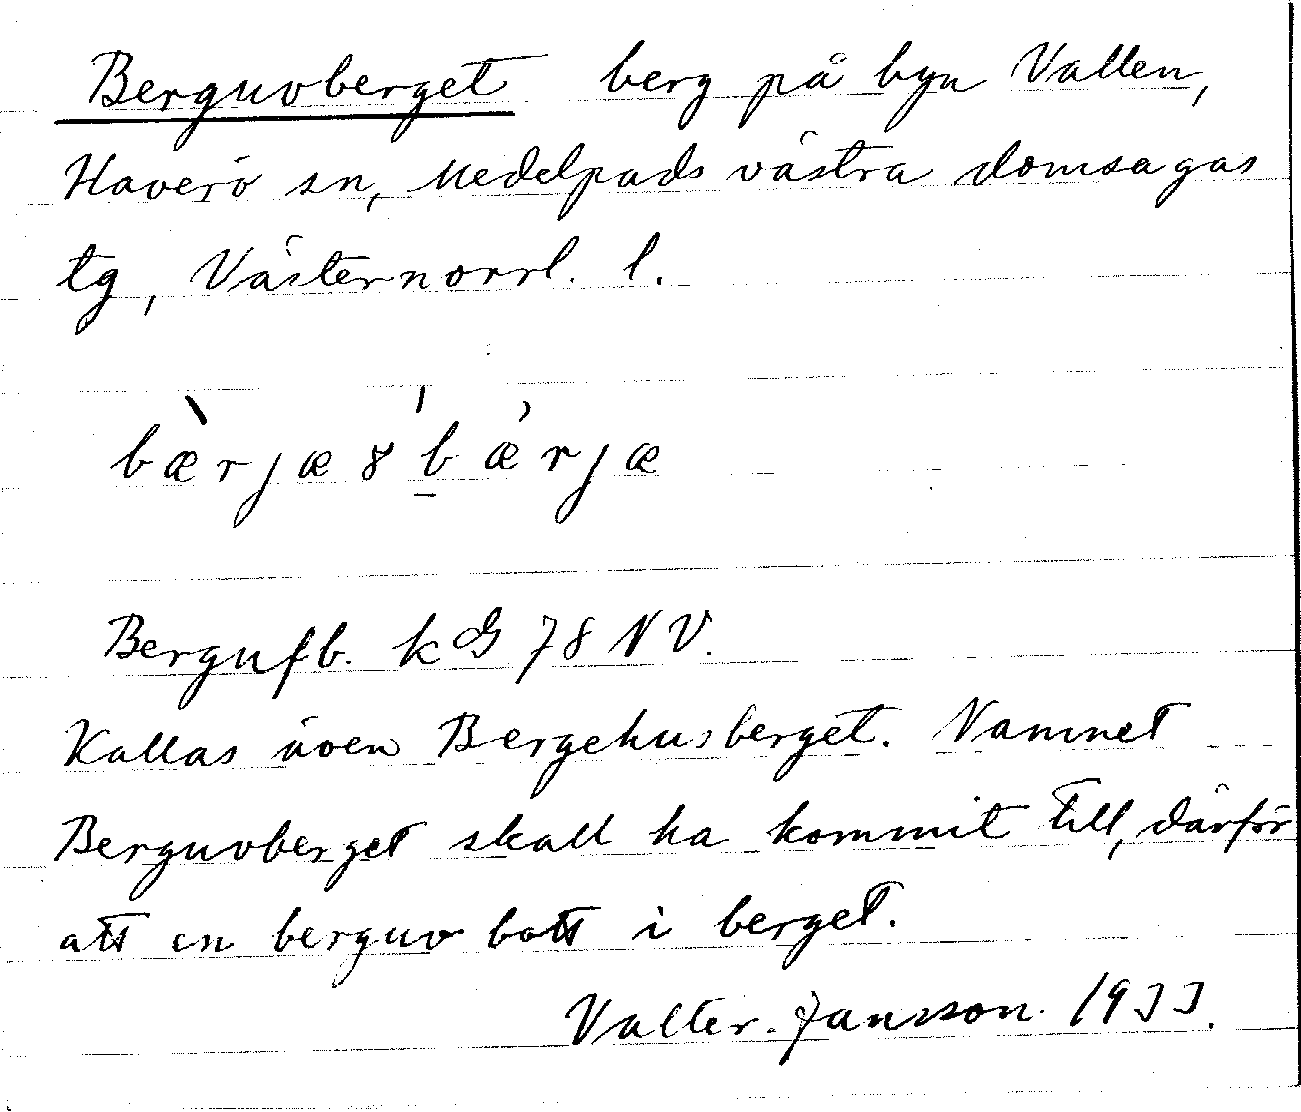 Berguvberget berg på byn Vallen,
Haverö sn, Medelpads västra domsagas
tg, Västernorrl. l.
bæ̀rjæ8'b̲ǽrjæ
Bergufb. kG 78 NV.
Kallas även Bergehusberget. Namnet
Berguvberget skall ha kommit till, därför
att en berguv bott i berget.
Valter Jansson. 1933.